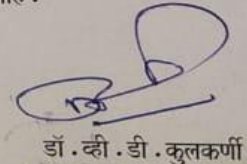 डॉ. व्ही. डी. कुलकर्णी